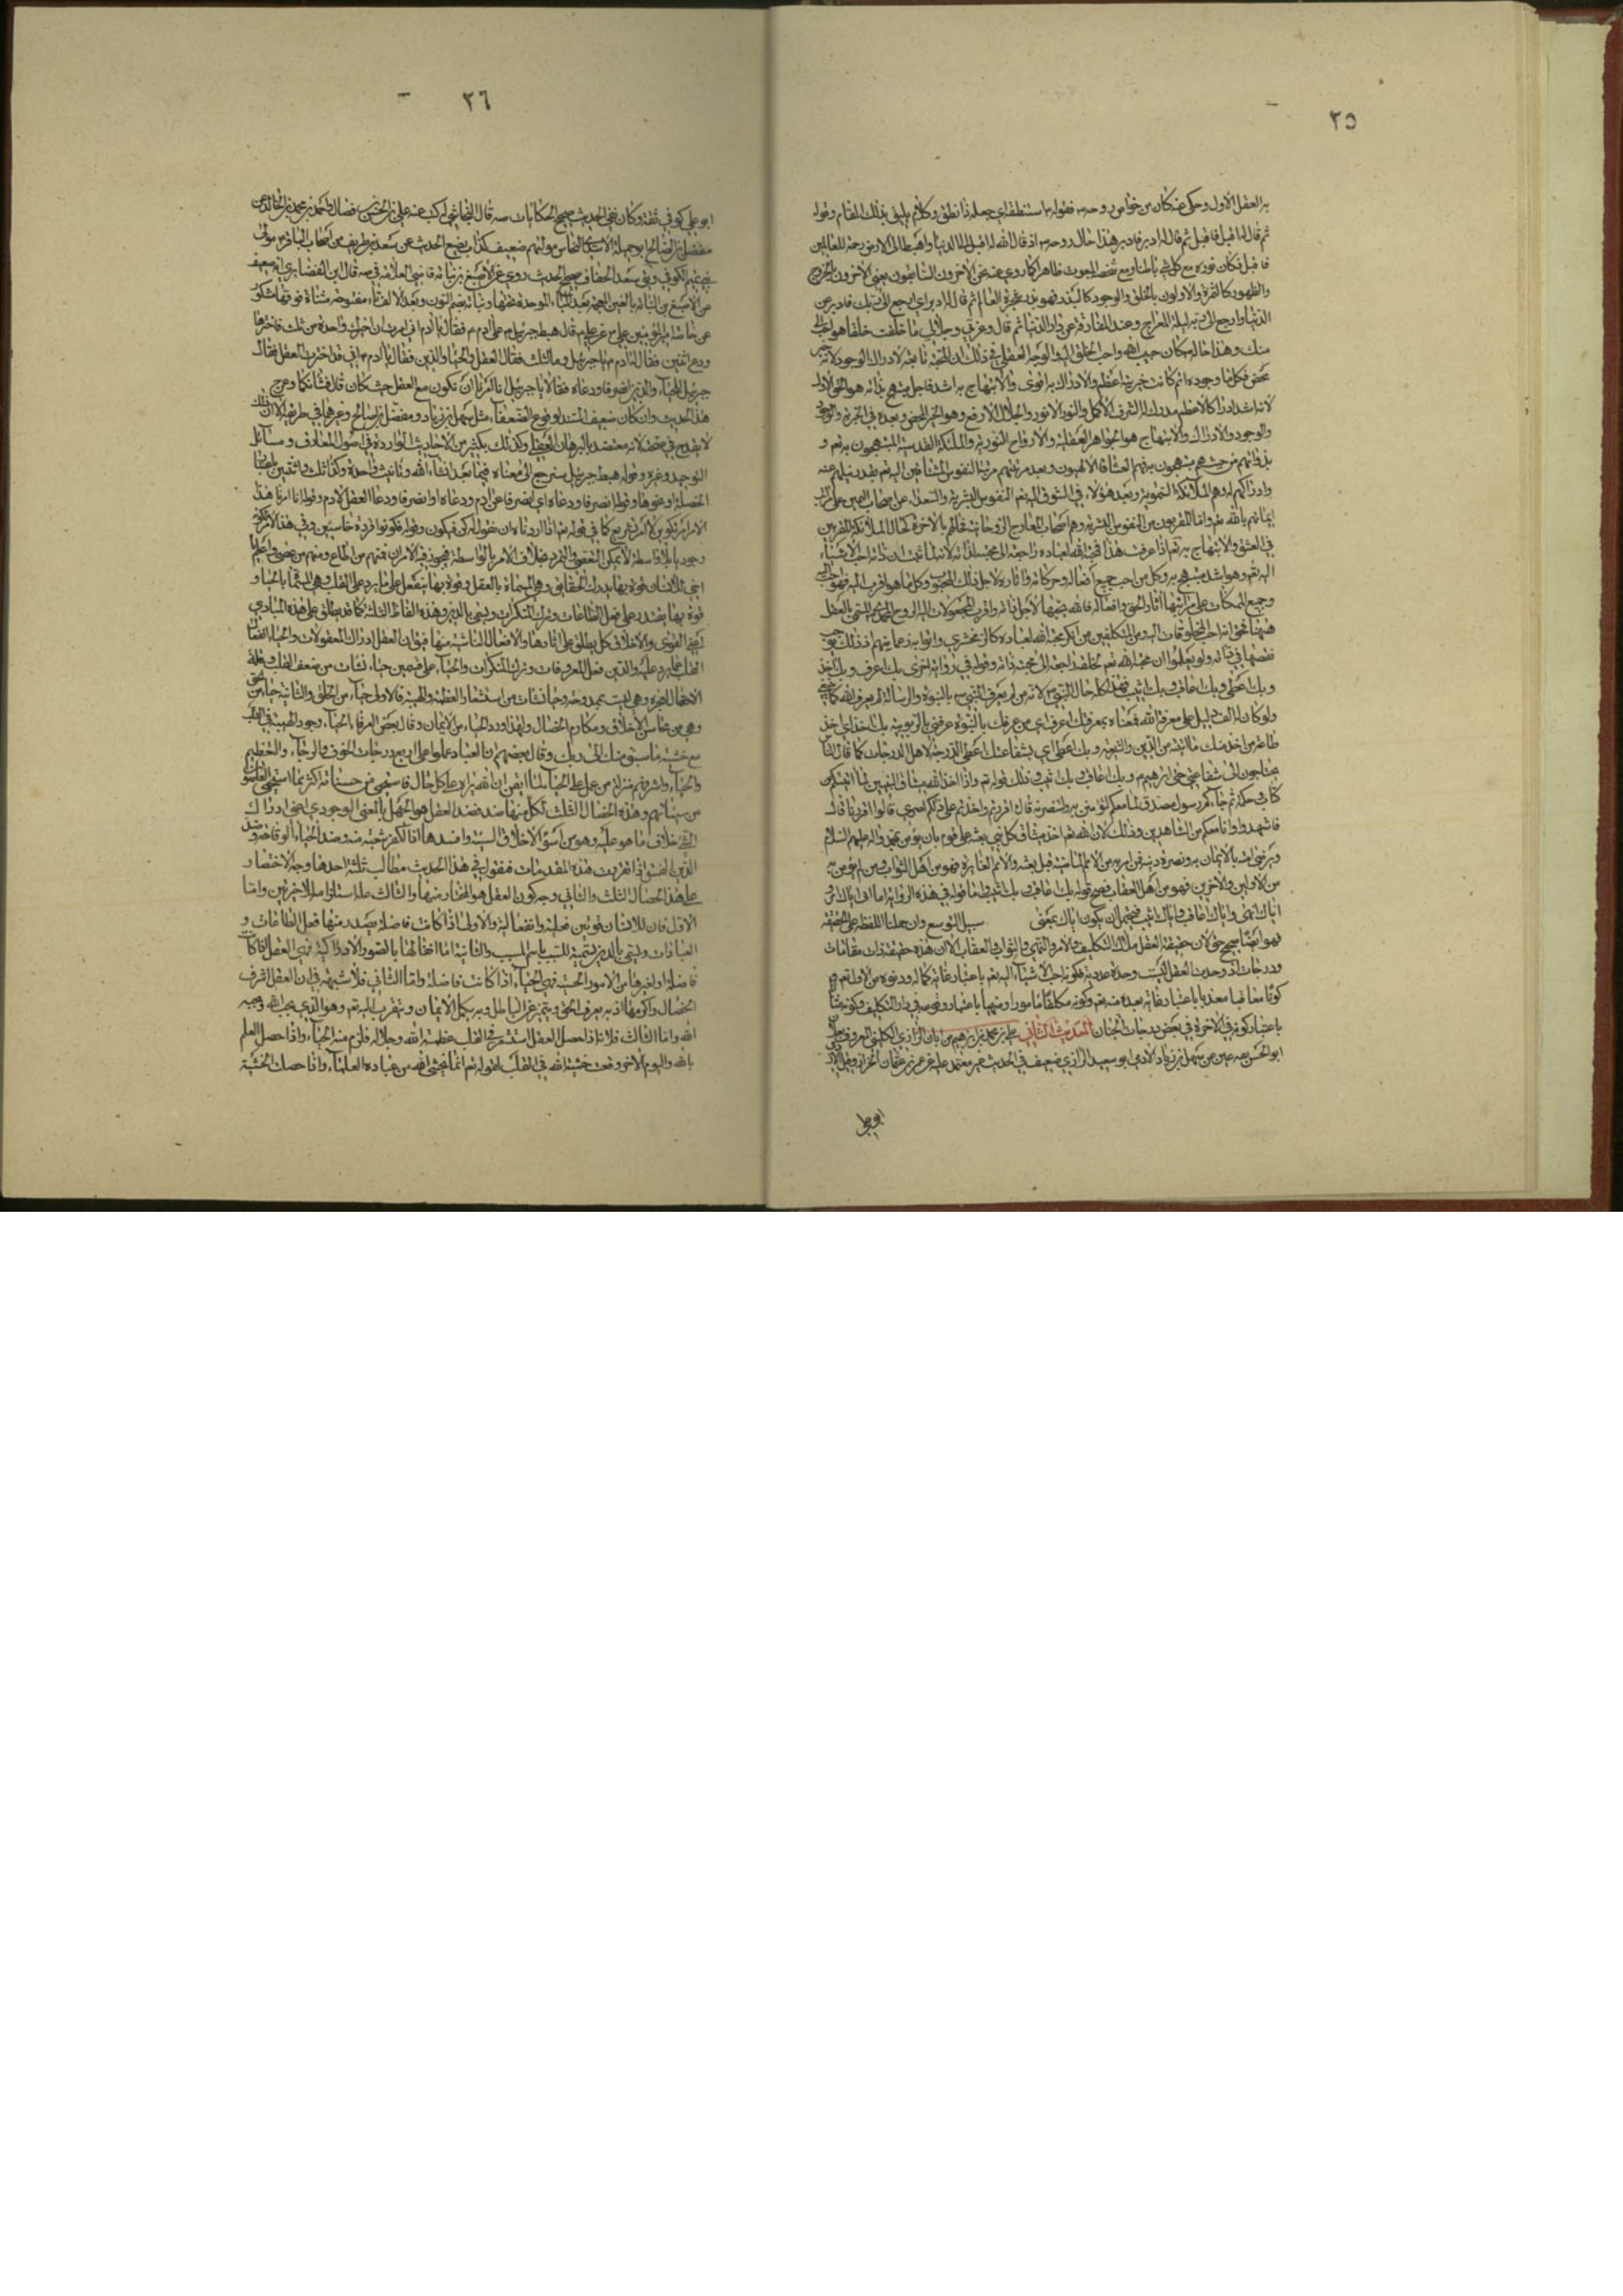 ٢٥
به العقل الاول وحكى عنه كان من خواص روحه فقوله استنطقه اي جعله ذا نطق وكلام يليق بذلك المقام وقوله
ثم قال له اقبل فاقبل ثم قال له ادبر فادبر هذا حال روحه اذ قال الله له اقبل الى الدنيا واهبط الى الارض رحمة للعالمين
فاقبل فكان نوره مع كل نبي باطنا ومع شخصه المبعوث ظاهرا كما روي عنه نحن الآخرون السابقون يعني الآخرون بالخروج
والظهور كالثمرة والاولون بالخلق والوجود كالبذر فهو بذر شجرة العالم ثم قال له ادبر اي ارجع الى ربك فادبر عن
الدنيا وارجع الى ربه ليلة المعراج وعند المفارقة عن دار الدنيا ثم قال وعزتي وجلالي ما خلقت خلقا هو احب الي
منك وهذا حاله كان حبيب الله واحب الخلق اليه والوجه العقلي في ذلك ان المحبة تابعة لادراك الوجود لانه خير
محض فكل ما وجوده اتم كانت خيريته اعظم والادراك به اقوى والابتهاج به اشد فاجل مبتهج بذاته هو الحق الاول
لانه اشد ادراكا لاعظم مدرك له الشرف الاكمل والنور الانور والجلال الارفع وهو الخير المحض وبعده في الخيرية والوجود
والوجود والادراك والابتهاج هو الجواهر العقلية والارواح النورية والملائكة القدسية المبتهجون به تعم و
بذواتهم من حيث هم مبتهجون به فهم العشاق الالهيون وبعد مرتبتهم مرتبة النفوس المشتاقين اليه تعم بقدر نيلهم عنه
وادراكهم له وهم الملائكة السماوية وبعد هؤلاء في الشوق اليه تعم النفوس البشرية والسعداء من اصحاب اليمين على مراتب
ايمانهم بالله تعم واما المقربون من النفوس البشرية وهم اصحاب المعارج الروحانية فحالهم بالآخرة كحال الملائكة المقربين
في العشق والابتهاج به تعم اذا عرفت هذا فمحبة الله لعباده راجعة الى محبته لذاته لانه لما ثبت ان ذاته احب الاشياء
اليه تعم وهو اشد مبتهج به وكل من احب جميع افعاله وحركاته واثاره لاجل ذلك المحبوب وكل ما هو اقرب اليه فهو احب اليه
وجميع الممكنات على مراتبها اثار الحق وافعاله فالله يحبها لاجل ذاته واقرب المجعولات اليه الروح المحمدي المسمى بالعقل
هيهنا فحق انه احب المخلوقات اليه ومن المتكلمين من انكر محبة الله لعباده كالزمخشري واترابه زعما منهم ان ذلك يوجب
نقصا في ذاته ولم يعلموا ان محبة الله تعم لخلقه راجعة الى محبته ذاته وقوله في رواية اخرى بك اعرف وبك اخذ
وبك اعطي وبك اعاقب وبك اثيب
ولو كان المراد دليل على معرفة الله فمعناه بمعرفتك اعرف اي من عرفك بالنبوة عرفني بالربوبية وبك اخذ اي اخذ
طاعة من اخذ منك ما اتيته من الدين والشريعة وبك اعطي اي بشفاعتك اعطي الدرجة لاهل الدرجات كما قال الناس
يحتاجون الى شفاعتي حتى ابرهيم وبك اعاقب وبك اثيب وذلك قوله تعم واذ اخذ الله ميثاق النبيين لما اتيتكم من
كتاب وحكمة ثم جاءكم رسول مصدق لما معكم لتؤمنن به ولتنصرنه قال اقررتم واخذتم على ذلكم اصري قالوا اقررنا قال
فاشهدوا وانا معكم من الشاهدين وذلك لان الله تعم اخذ ميثاق كل نبي بعثه على قوم بان يؤمن بمحمد واله عليهم السلام
ويرضى امته بالايمان به ونصرة دينه فمن امن به من الامم الماضية قبل بعثته والامم الغابرة فهو من اهل الثواب ومن لم يؤمن به
من الاولين والآخرين فهو من اهل العقاب فصح قوله بك اعاقب وبك اثيب واما قوله في هذه الرواية اما اني اياك امر و
اياك انهى واياك اعاقب واياك اثيب فيحتمل ان يكون اياك بمعنى سبيل التوسع وان حملنا اللفظ على الحقيقة
فهو ايضا صحيح حق لان حقيقة العقل ملاك التكليف والامر والنهي والثواب والعقاب الا ان هذه حقيقة ذات مقامات
ودرجات اذ وحدت العقل ليست وحدة عددية فكونه احب الاشياء اليه تعم باعتبار غاية كماله ودنوه من الاول تعم و
كونه معاقبا معذبا باعتبار غاية بعده منه تعم وكونه مكلفا مامورا ومنهيا باعتبار وقوعه في دار التكليف وكونه مثابا
باعتبار كونه في الآخرة في بعض درجات الجنان الحديث الثاني علي بن محمد بن ابرهيم بن ابان الرازي الكليني المعروف بعلان
ابو الحسن ثقة عين عن سهل بن زياد الادمي ابو سعيد الرازي ضعيف في الحديث غير معتمد عليه عن عمرو بن عثمان الخزاز وقيل الازدي
ابو علي
٢٦
ابو علي كوفي ثقة وكان نقي الحديث صحيح الحكايات صه قال النجاشي له كتب عنه علي بن الحسن بن فضال واحمد بن محمد بن خالد عن
مفضل بن صالح ابو جميلة الاسدي النخاس مولاهم ضعيف كذاب يضع الحديث عن سعد بن طريف من اصحاب الباقر مولى
بني تميم الكوفي ويق سعد الخفاف صحيح الحديث روى عن الاصبغ بن نباتة قاضيا العلامة في صه قال ابن الغضائري انه ضعيف
عن الاصبغ بن نباتة بالغين المعجمة بعد الباء الموحدة تحتها ونباتة بضم النون وبعد الالف تاء مفتوحة مثناة فوقها مشكور
من خاصة امير المؤمنين علي عن علي قال هبط جبرئيل على ادم فقال يا ادم اني امرت ان اخيرك واحدة من ثلث فاخترها
ودع اثنتين فقال له ادم يا جبرئيل وما الثلث فقال العقل والحياء والدين فقال ادم اني قد اخترت العقل فقال
جبرئيل للحياء والدين انصرفا ودعاه فقالا يا جبرئيل انا امرنا ان نكون مع العقل حيث كان قال فشانكما وعرج
هذا الحديث وان كان ضعيف السند لوقوع الضعفاء مثل سهل بن زياد ومفضل بن صالح وغيرهما في طريقه الا ان ذلك
لا يقدح في صحته لانه معتضد بالبرهان العقلي وكذلك كثير من الاحاديث الواردة في اصول المعارف ومسائل
التوحيد وغيره وقوله هبط جبرئيل سنرجع الى معناه فيما بعد انشاء الله وتانيث واحدة وكذا ثلث واثنتين باعتبار
الخصلة او نحوها وقوله انصرفا ودعاه اي انصرفا عن ادم ودعاه او انصرفا ودعا العقل لادم وقولهما انا امرنا هذا
الامر امر تكوين لا امر تشريع كما في قوله تعم اذا اردناه ان نقول له كن فيكون وقوله كونوا قردة خاسئين وفي هذا الامر يكون
وجودا بلا واسطة لا يمكن العقوق والتمرد بخلاف الامر بالواسطة فيجوز فيه الامران فمنهم من اطاع ومنهم من عصى واعلم
اخي ان للانسان قوة بها يدرك الحقائق وهي المسماة بالعقل وقوة بها ينفعل عما يرد على القلب وهي المسماة بالحياء و
قوة بها يقتدر على فعل الطاعات وترك المنكرات ويسمى بالدين وهذه الفاظ الثلثة كما قد يطلق على هذه المبادي
اعني القوى والاخلاق كل يطلق على اثارها والافعال الناشئة منها فيق ان العقل ادراك المعقولات والحياء انفعال
القلب عما يرد عليه والدين فعل المعروفات وترك المنكرات والحياء على قسمين حياء نشات من ضعف القلب وقلة
الاحتمال لعجزه وهي ليست بممدوحة وحيا نشات من استشعار العظمة والهيبة فالاولى حياء من الخلق والثانية حياء من الحق
وهي من محاسن الاخلاق ومكارم الخصال ولهذا ورد الحياء من الايمان وقال بعض العرفاء الحياء وجود الهيبة في القلب
مع خشية ما سبق منك الى ربك وقال بعضهم ان العباد عملوا على اربع درجات الخوف والرجاء والتعظيم
والحياء واشرفهم منزلة من عمل على الحياء لما ايقن ان الله يراه على كل حال فاستحيى من حسناته اكثر مما استحيى العاصون
من سيئاتهم وهذه الخصال الثلث لكل منها ضد فضد العقل هو الجهل بالمعنى الوجودي اعني ادراك
الشيء خلاف ما هو عليه وهو من اسوء الاخلاق السيئة واضدها اذ الكفر شعبة منه وضد الحياء الوقاحة وضد
الدين الفسق اذا تقررت هذه المقدمات فنقول في هذا الحديث مطالب ثلثة احدها وجه الاختصار
على هذا الخصال الثلث والثاني وجه كون العقل هو المختار منها والثالث علة استلزامه للاخيرتين واما
الاول فان للانسان قوتين فعلية وانفعالية والاولى اذا كانت فاضلة يصدر منها فعل الطاعات و
العبادات ويسمى بالدين تسمية للسبب باسم المسبب والثانية اما انفعالها بالصور الادراكية فهي العقل اذا كانت
فاضلة او لغيرها من الامور الحسنة فهي الحياء اذا كانت فاضلة واما الثاني فلا شبهة في ان العقل اشرف
الخصال واكرمها اذ به يعرف الحق ويتميز عن الباطل وبه يكمل الايمان ويتقرب اليه تعم وهو الذي يحب الله ويحبه
الله واما الثالث فلانا اذا حصل العقل استشعر في القلب عظمة الله وجلاله فلزم منه الحياء واذا حصل العلم
بالله واليوم الآخر وقعت خشية الله في القلب لقوله تعم انما يخشى الله من عباده العلماء واذا حصلت الخشية